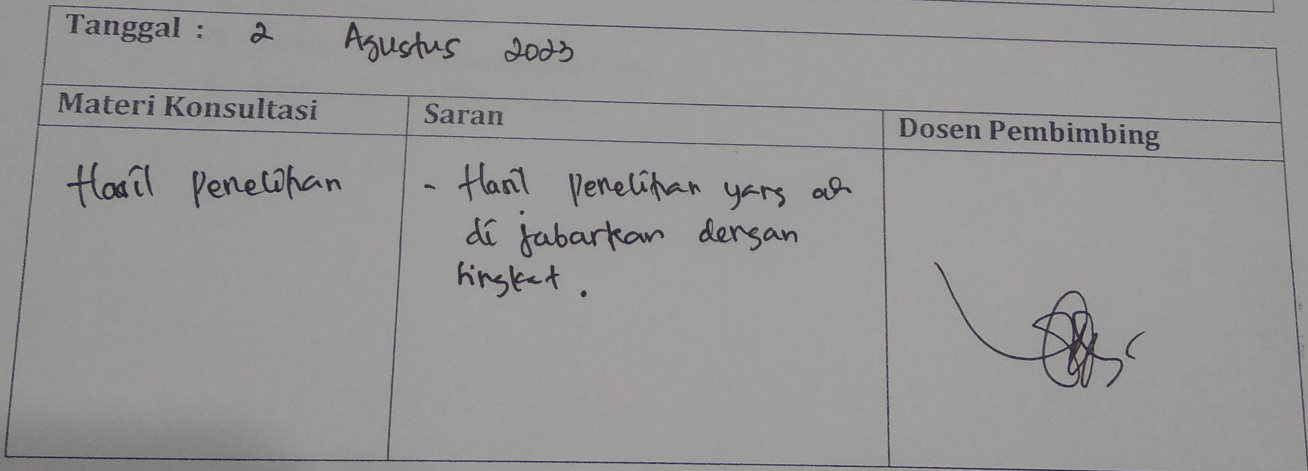 Tanggal : 2 Agustus 2023
Materi Konsultasi
Saran
Dosen Pembimbing
Hasil Penelitian
- Hasil Penelitian yang
di jabarkan dengan